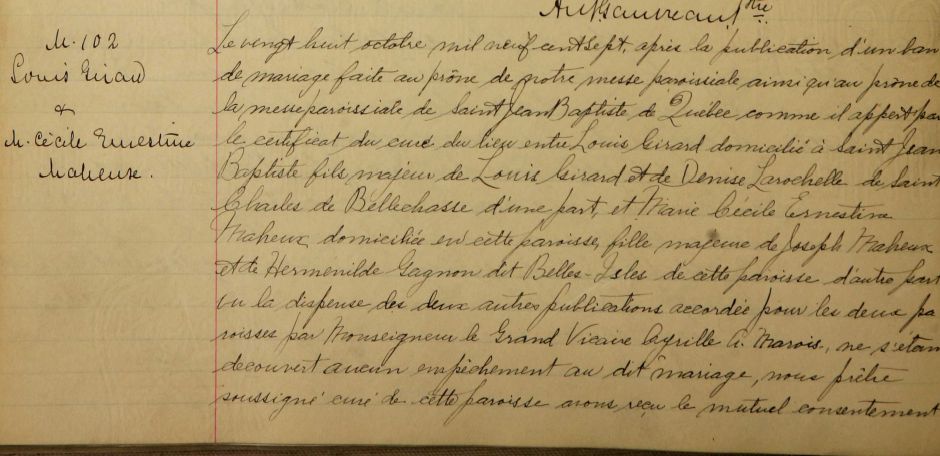 Ant Gauvreau Ptre
M. 102
Louis Girard
&
M. Cécile Ernestine
Maheux.
Le vengt huit octobre mil neuf cent sept, après la publication d'un ban
de mariage faite au prône de notre messe paroissiale ainsi qu'au prône de
la messe paroissiale de Saint Jean Baptiste de Québec comme il appert par
le certificat du curé du lieu entre Louis Girard domicilié à Saint Jean
Baptiste fils majeur de Louis Girard et de Denise Larochelle de Saint
Charles de Bellechasse d'une part, et Marie Cécile Ernestine
Maheux domiciliée en cette paroisse, fille majeure de Joseph Maheux
et de Hermenilde Gagnon dit Belles-Isles de cette paroisse d'autre part
vu la dispense des deux autres publications accordée pour les deux pa
roisses par Monseigneur le Grand Vicaire Cyrille A. Marois, ne s'étant
découvert aucun empêchement au dit mariage, nous prêtre
soussigné curé de cette paroisse avons reçu le mutuel consentement